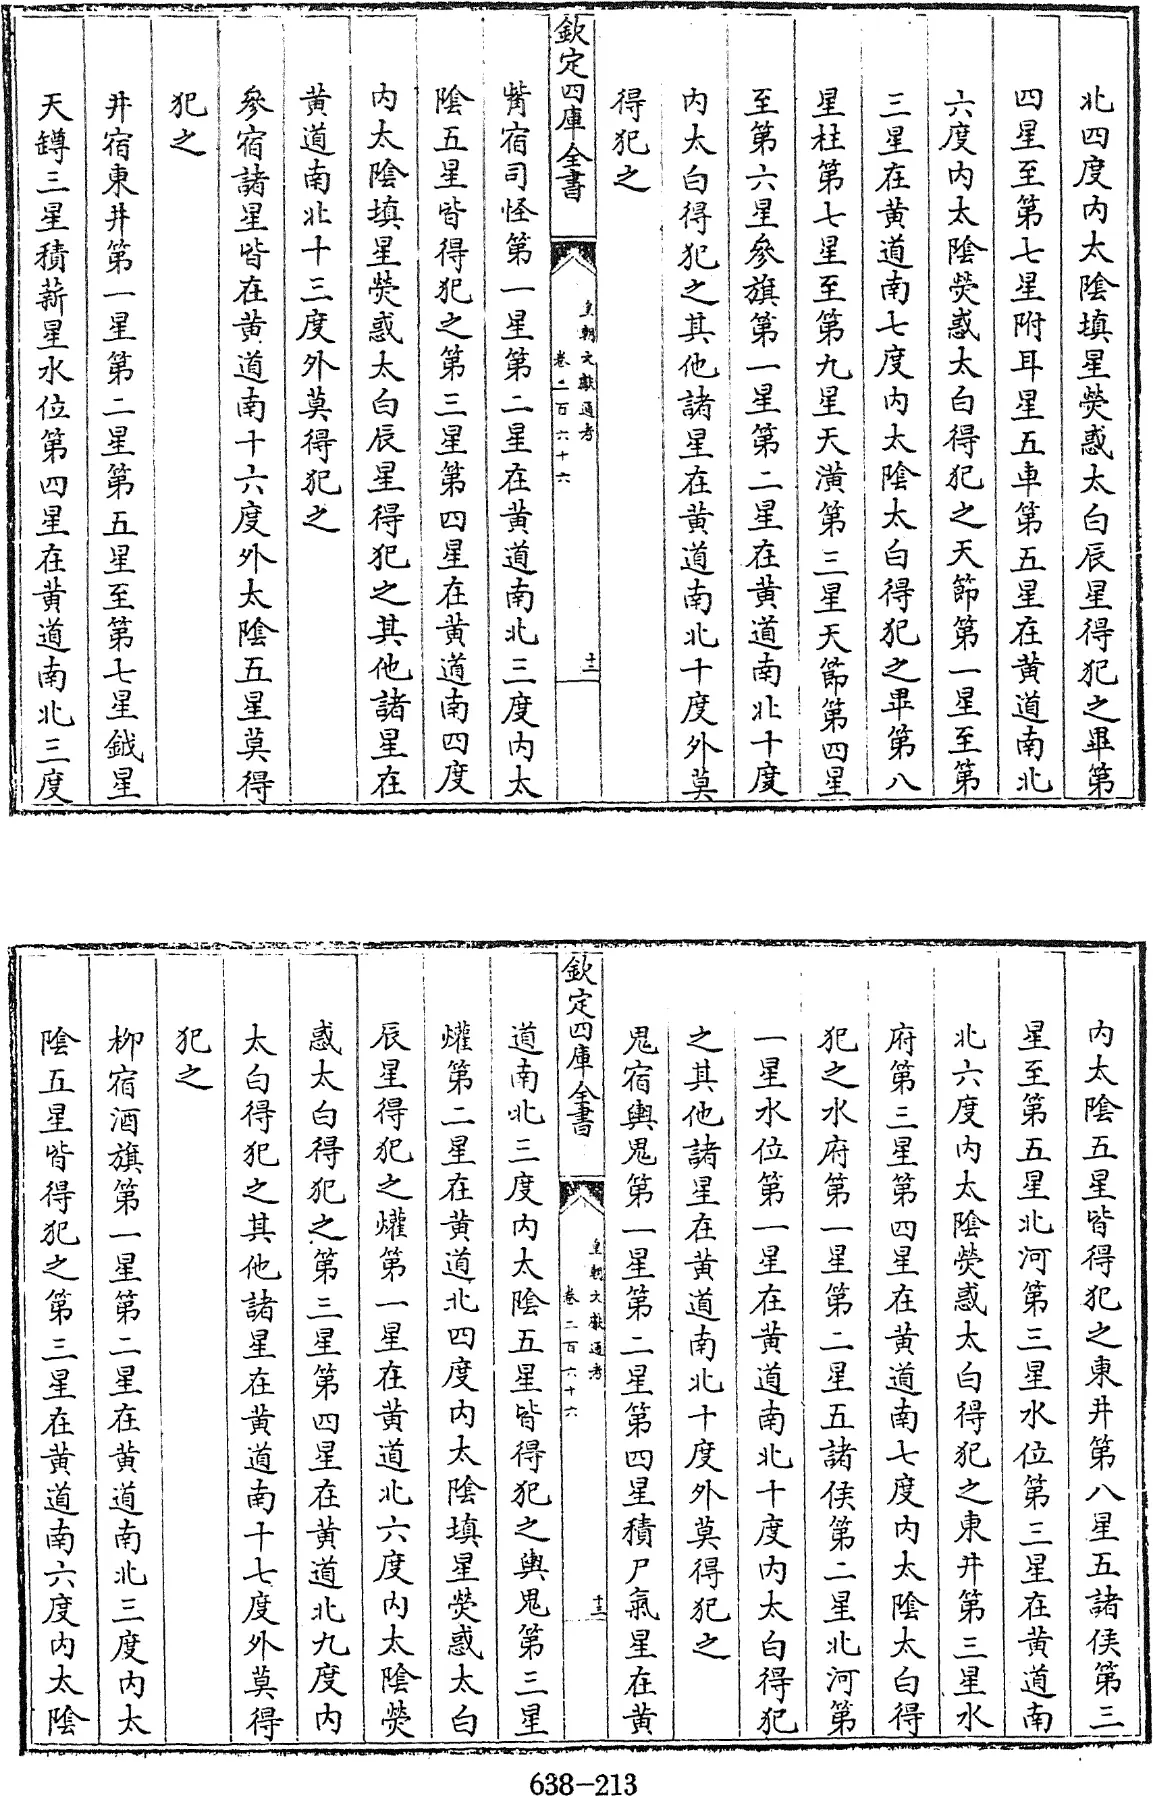 北四度内太陰填星熒惑太白辰星得犯之畢第
四星至第七星附耳星五車第五星在黄道南北
六度内太陰熒惑太白得犯之天節第一星至第
三星在黄道南七度内太陰太白得犯之畢第八
星柱第七星至第九星天潢第三星天節第四星
至第六星參旗第一星第二星在黄道南北十度
内太白得犯之其他諸星在黄道南北十度外莫
得犯之
欽定四庫全書
皇朝文獻通考
卷二百六十六
十二
觜宿司怪第一星第二星在黄道南北三度内太
陰五星皆得犯之第三星第四星在黄道南四度
内太陰填星熒惑太白辰星得犯之其他諸星在
黄道南北十三度外莫得犯之
參宿諸星皆在黄道南十六度外太陰五星莫得
犯之
井宿東井第一星第二星第五星至第七星鉞星
天罇三星積薪星水位第四星在黄道南北三度
内太陰五星皆得犯之東井第八星五諸侯第三
星至第五星北河第三星水位第三星在黄道南
北六度内太陰熒惑太白得犯之東井第三星水
府第三星第四星在黄道南七度内太陰太白得
犯之水府第一星第二星五諸侯第二星北河第
一星水位第一星在黄道南北十度内太白得犯
之其他諸星在黄道南北十度外莫得犯之
鬼宿輿鬼第一星第二星第四星積尸氣星在黄
欽定四庫全書
皇朝文獻通考
卷二百六十六
十三
道南北三度内太陰五星皆得犯之輿鬼第三星
爟第二星在黄道北四度内太陰填星熒惑太白
辰星得犯之爟第一星在黄道北六度内太陰熒
惑太白得犯之第三星第四星在黄道北九度内
太白得犯之其他諸星在黄道南十七度外莫得
犯之
柳宿酒旗第一星第二星在黄道南北三度内太
陰五星皆得犯之第三星在黄道南六度内太陰
638-213